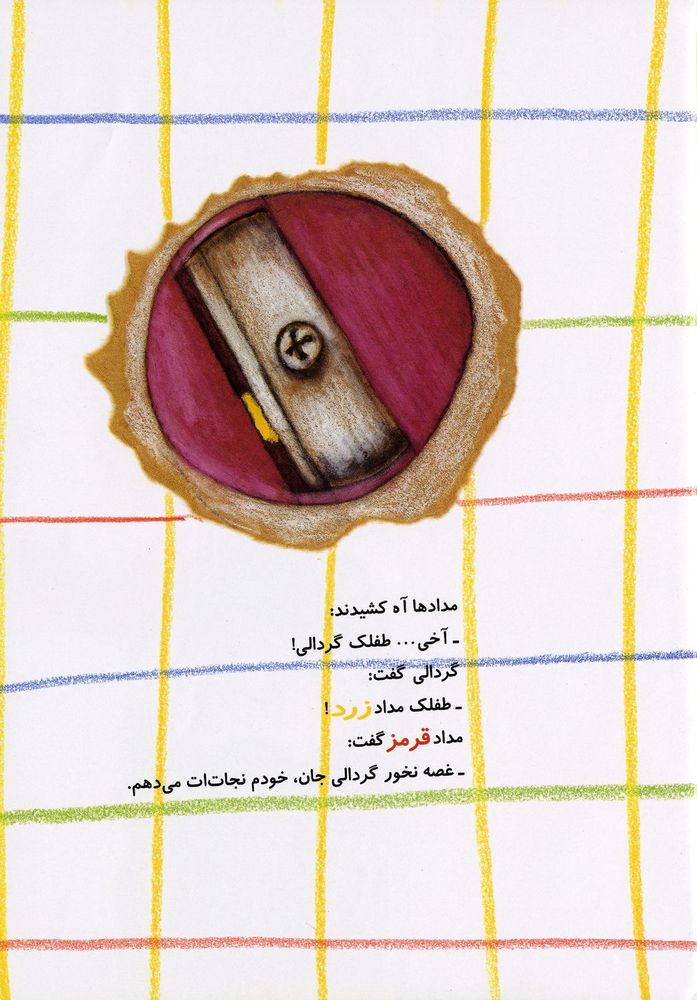 مدادها آه کشیدند:
ـ آخی... طفلک گردالی!
گردالی گفت:
ـ طفلک مداد زرد!
مداد قرمز گفت:
ـ غصه نخور گردالی جان، خودم نجات‌ات می‌دهم.